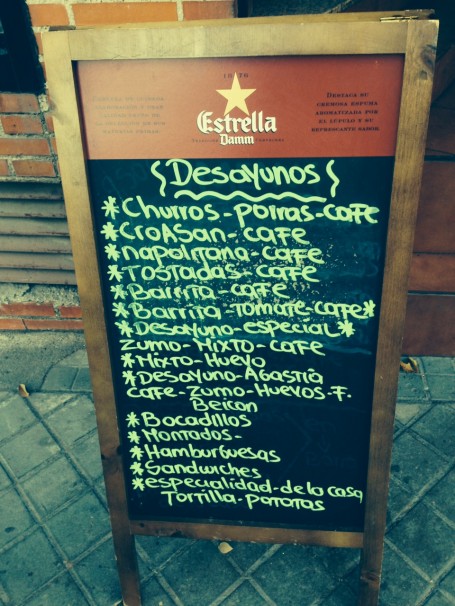 1876
Estrella
Damm
DESTACA SU
CREMOSA ESPUMA
AROMATIZADO POR
EL LÚPULO Y SU
REFRESCANTE SABOR
Desayunos
*Churros-porras-cafe
*CroAsan-cafe
*napolitana-cafe
*Tostadas-cafe
*Barrita-cafe
*Barrita-Tomate-cafe*
*Desayuno-especial*
Zumo-Mixto-cafe
*Mixto-Huevo
*Desayuno-Agastia
cafe-Zumo-Huevos-F.
Beicon
*Bocadillos
*Montados-
*Hamburguesas
*Sandwiches
*especialidad-de la casa
Tortilla-patatas